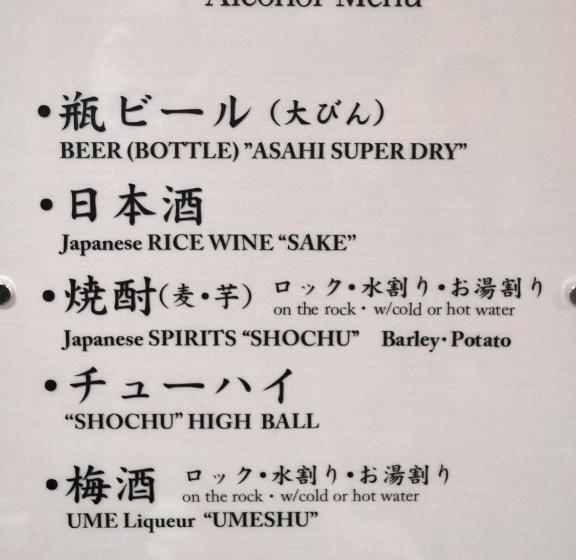 Alcohol Menu
•瓶ビール（大びん）
BEER (BOTTLE) ”ASAHI SUPER DRY”
•日本酒
Japanese RICE WINE “SAKE”
•焼酎(麦・芋) ロック・水割り・お湯割り
on the rock・w/cold or hot water
Japanese SPIRITS “SHOCHU” Barley・Potato
•チューハイ
“SHOCHU” HIGH BALL
•梅酒 ロック・水割り・お湯割り
on the rock・w/cold or hot water
UME Liqueur “UMESHU”